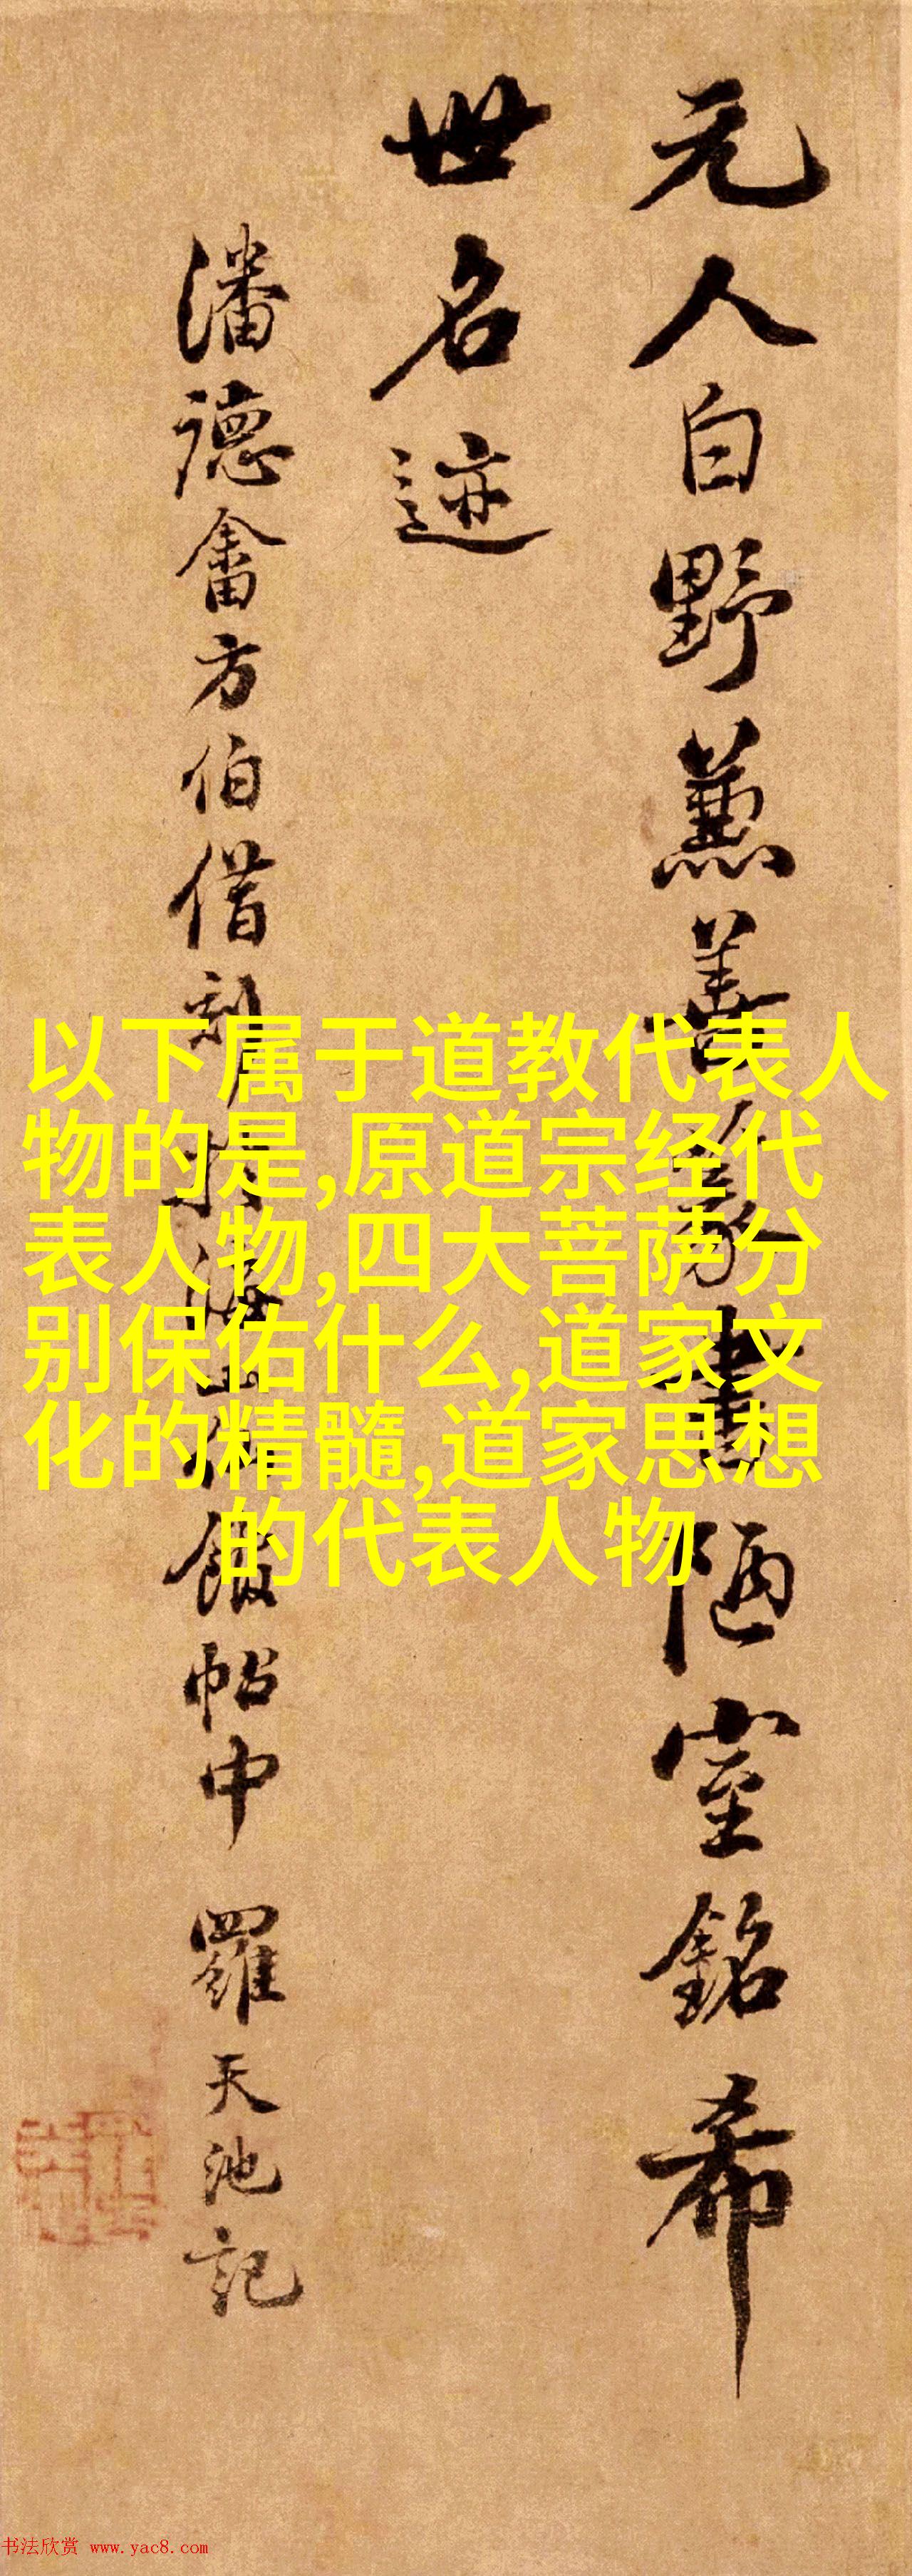 元人白野蕙善篆書陋室銘希
世名迹
潘德畬方伯借刻於海山仙館帖中 羅天池記
以下属于道教代表人
物的是,原道宗经代
表人物,四大菩萨分
别保佑什么,道家文
化的精髓,道家思想
的代表人物
书法欣赏 www.yac8.com